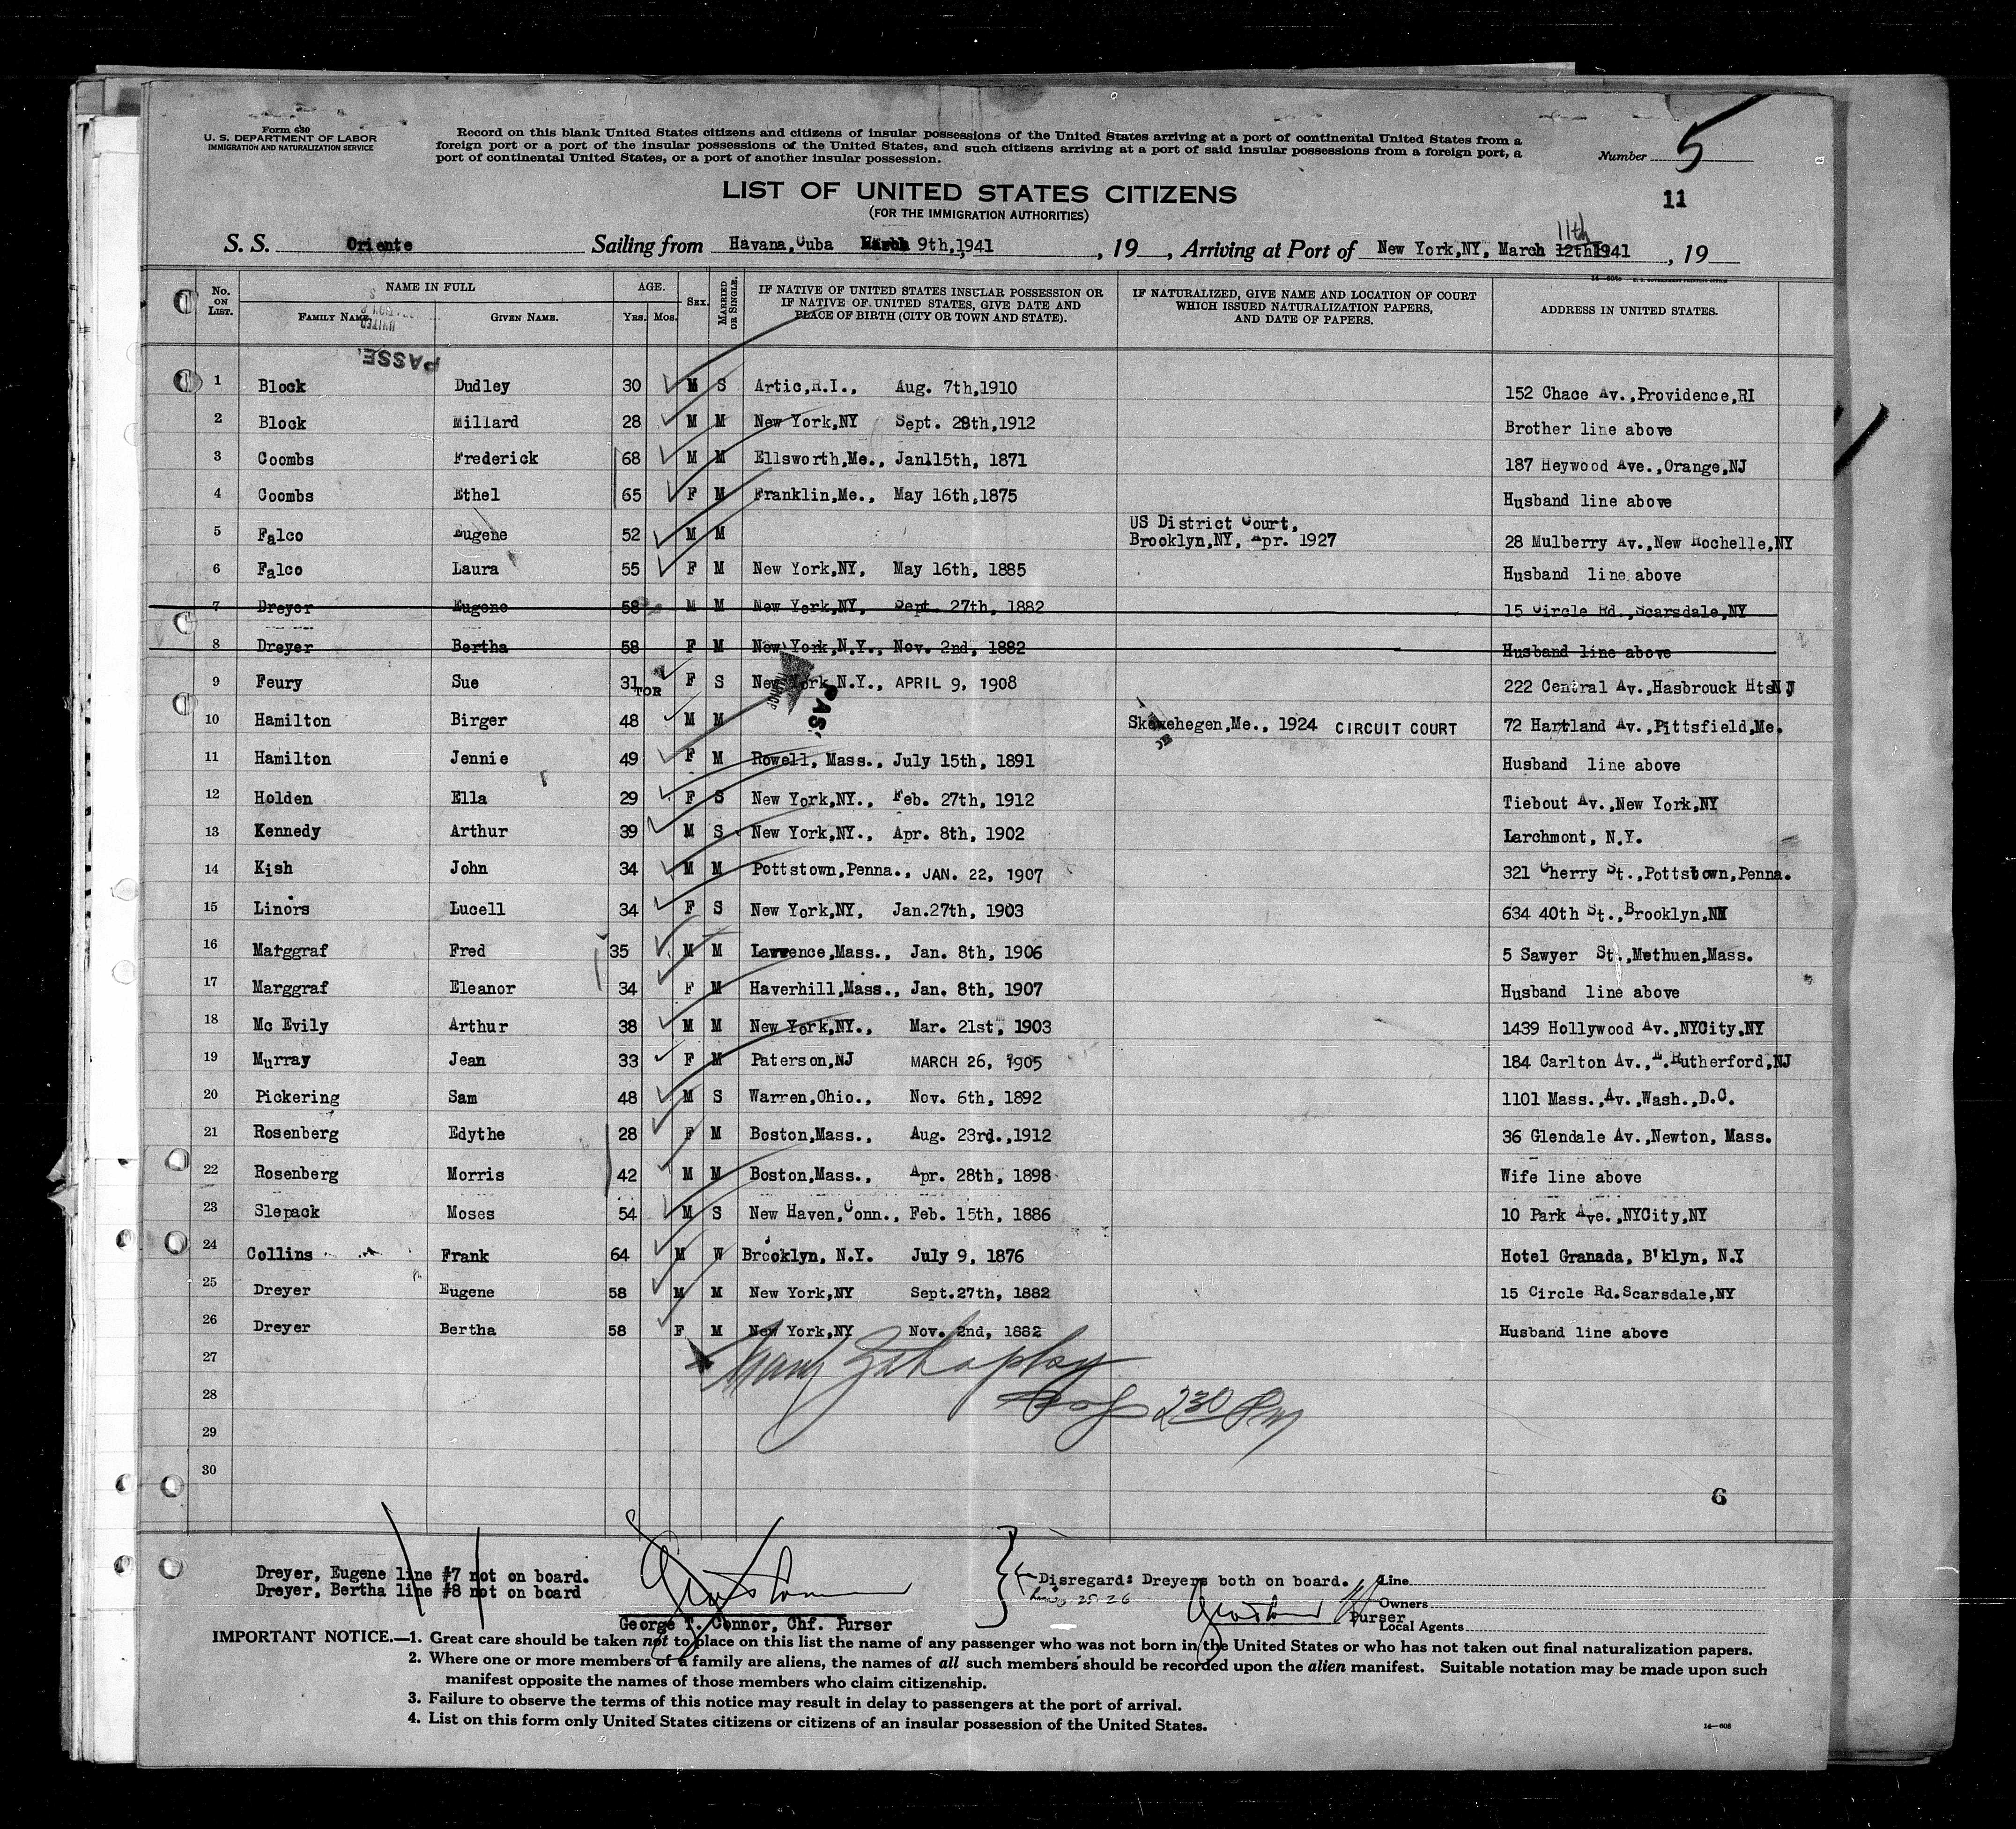 Form 630
U. S. DEPARTMENT OF LABOR
IMMIGRATION AND NATURALIZATION SERVICE
Record on this blank United States citizens and citizens of insular possessions of the United States arriving at a port of continental United States from a
foreign port or a port of the insular possessions of the United States, and such citizens arriving at a port of said insular possessions from a foreign port, a
port of continental United States, or a port of another insular possession.
Number 5
LIST OF UNITED STATES CITIZENS
(FOR THE IMMIGRATION AUTHORITIES)
11
11th
S. S. Oriente Sailing from Havana, Cuba March 9th, 1941, 19 , Arriving at Port of New York, NY, March 12th 1941, 19
No. ON LIST. NAME IN FULL FAMILY NAME. GIVEN NAME. AGE. YRS. MOS. SEX. MARRIED OR SINGLE. IF NATIVE OF UNITED STATES INSULAR POSSESSION OR IF NATIVE OF UNITED STATES, GIVE DATE AND PLACE OF BIRTH (CITY OR TOWN AND STATE). IF NATURALIZED, GIVE NAME AND LOCATION OF COURT WHICH ISSUED NATURALIZATION PAPERS, AND DATE OF PAPERS. ADDRESS IN UNITED STATES.
PASSE
1 Block Dudley 30 M S Artic,R.I., Aug. 7th,1910 152 Chace Av.,Providence,RI
2 Block Millard 28 M M New York,NY Sept. 28th,1912 Brother line above
3 Coombs Frederick 68 M M Ellsworth,Me., Jan.15th, 1871 187 Heywood Ave.,Orange,NJ
4 Coombs Ethel 65 F M Franklin,Me., May 16th,1875 Husband line above
5 Falco Eugene 52 M M US District Court, Brooklyn,NY, Apr. 1927 28 Mulberry Av.,New Rochelle,NY
6 Falco Laura 55 F M New York,NY, May 16th, 1885 Husband line above
7 Dreyer Eugene 58 M M New York,NY, Sept. 27th, 1882 15 Circle Rd.,Scarsdale,NY
8 Dreyer Bertha 58 F M New York,N.Y., Nov. 2nd, 1882 Husband line above
9 Feury Sue 31 F S New York N.Y., APRIL 9, 1908 222 Central Av.,Hasbrouck Hts NJ
10 Hamilton Birger 48 M M Skowhegen,Me., 1924 CIRCUIT COURT 72 Hartland Av.,Pittsfield,Me.
11 Hamilton Jennie 49 F M Rowell, Mass., July 15th, 1891 Husband line above
12 Holden Ella 29 F S New York,NY., Feb. 27th, 1912 Tiebout Av.,New York,NY
13 Kennedy Arthur 39 M S New York,NY., Apr. 8th, 1902 Larchmont, N.Y.
14 Kish John 34 M M Pottstown,Penna., JAN. 22, 1907 321 Cherry St.,Pottstown,Penna.
15 Linors Lucell 34 F S New York,NY, Jan.27th, 1903 634 40th St.,Brooklyn,NY
16 Marggraf Fred 35 M M Lawrence,Mass., Jan. 8th, 1906 5 Sawyer St.,Methuen,Mass.
17 Marggraf Eleanor 34 F M Haverhill,Mass., Jan. 8th, 1907 Husband line above
18 Mc Evily Arthur 38 M M New York,NY., Mar. 21st, 1903 1439 Hollywood Av.,NYCity,NY
19 Murray Jean 33 F M Paterson,NJ MARCH 26, 1905 184 Carlton Av.,E.Rutherford,NJ
20 Pickering Sam 48 M S Warren,Ohio., Nov. 6th, 1892 1101 Mass.,Av.,Wash.,D.C.
21 Rosenberg Edythe 28 F M Boston,Mass., Aug. 23rd.,1912 36 Glendale Av.,Newton, Mass.
22 Rosenberg Morris 42 M M Boston,Mass., Apr. 28th, 1898 Wife line above
23 Slepack Moses 54 M S New Haven,Conn., Feb. 15th, 1886 10 Park Ave.,NYCity,NY
24 Collins Frank 64 M W Brooklyn, N.Y. July 9, 1876 Hotel Granada, B'klyn, N.Y
25 Dreyer Eugene 58 M M New York,NY Sept.27th, 1882 15 Circle Rd.Scarsdale,NY
26 Dreyer Bertha 58 F M New York,NY Nov. 2nd, 1882 Husband line above
27
28
230 Pm
29
30
6
Dreyer, Eugene line #7 not on board.
Dreyer, Bertha line #8 not on board
Disregard: Dreyers both on board.
lines 25 26
Line
Owners
Purser
Local Agents
George T. Connor, Chf. Purser
IMPORTANT NOTICE.—1. Great care should be taken not to place on this list the name of any passenger who was not born in the United States or who has not taken out final naturalization papers.
2. Where one or more members of a family are aliens, the names of all such members should be recorded upon the alien manifest. Suitable notation may be made upon such
manifest opposite the names of those members who claim citizenship.
3. Failure to observe the terms of this notice may result in delay to passengers at the port of arrival.
4. List on this form only United States citizens or citizens of an insular possession of the United States.